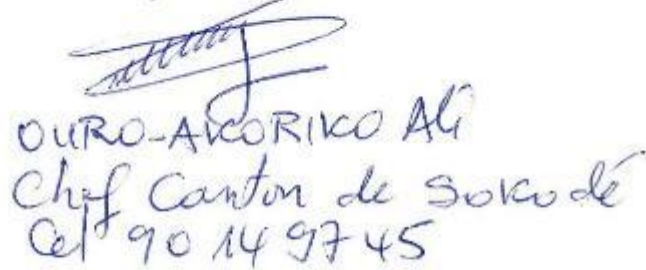 OURO-AKORIKO Ali
Chef Canton de Sokodé
Cel 90 14 97 45